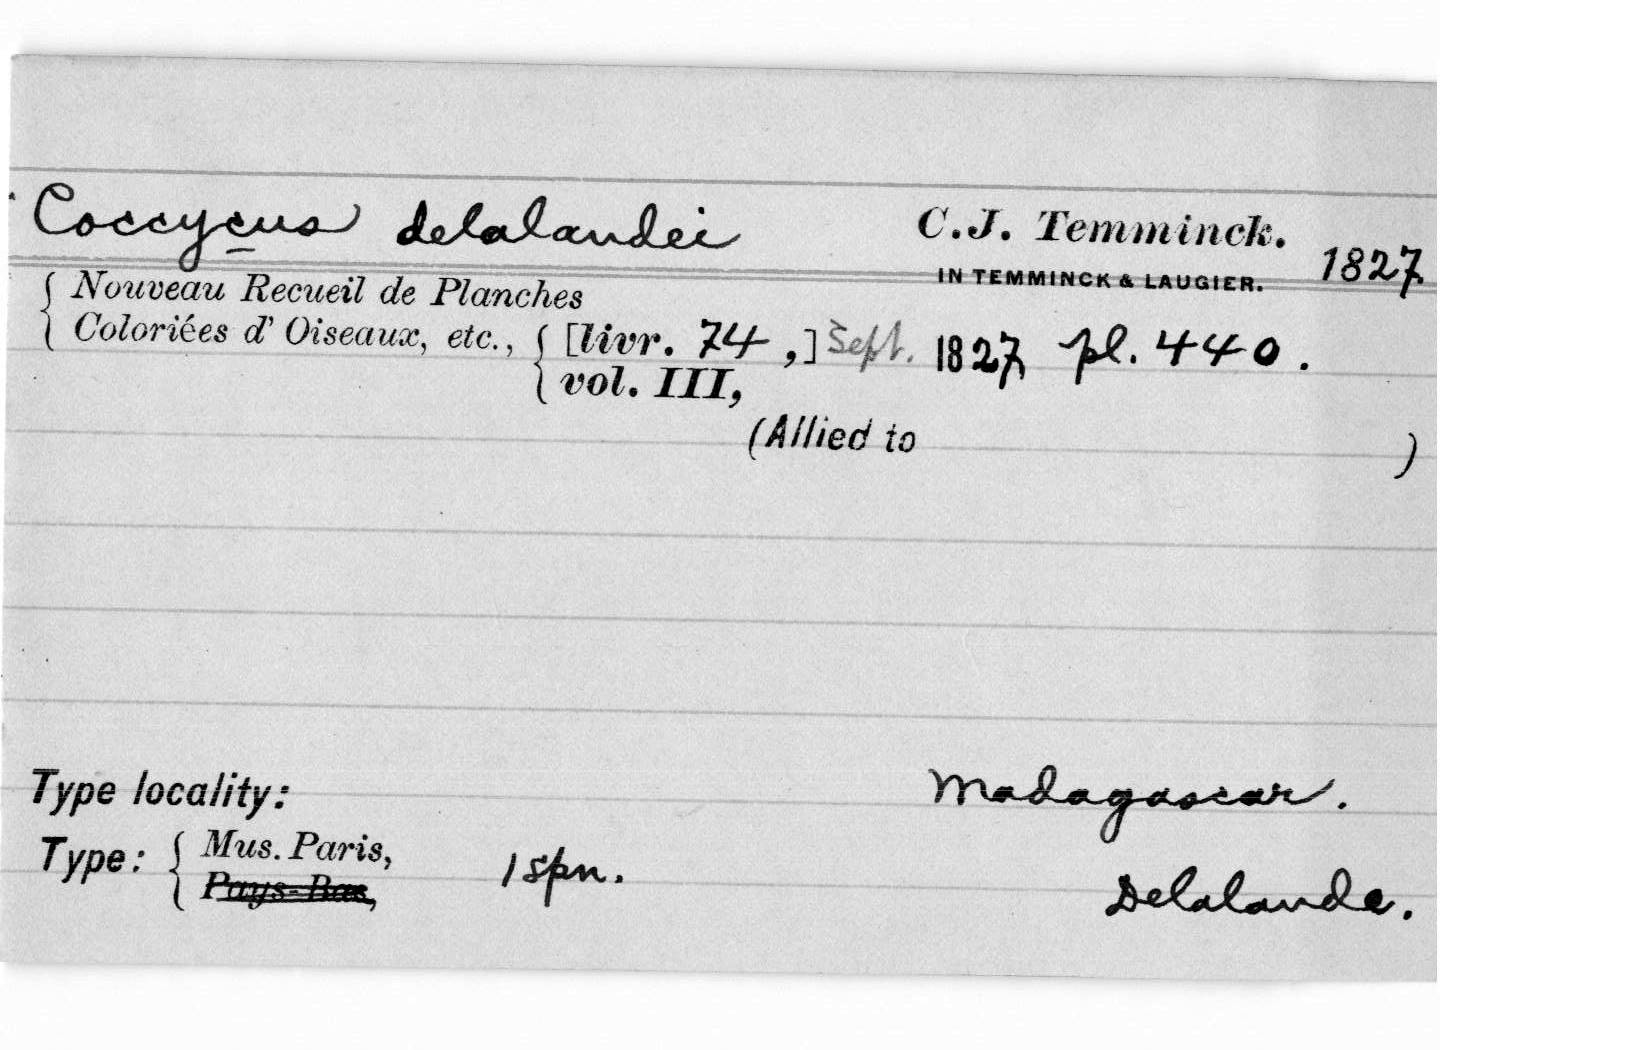 Coccycus delalandei C.J. Temminck.
IN TEMMINCK & LAUGIER. 1827.
{ Nouveau Recueil de Planches
Coloriées d' Oiseaux, etc., { [livr. 74 ,] Sept. 1827, pl. 440.
vol. III,
(Allied to )
Type locality: Madagascar.
Type: { Mus. Paris, 1 spn.
Pays-Bas, Delalande.